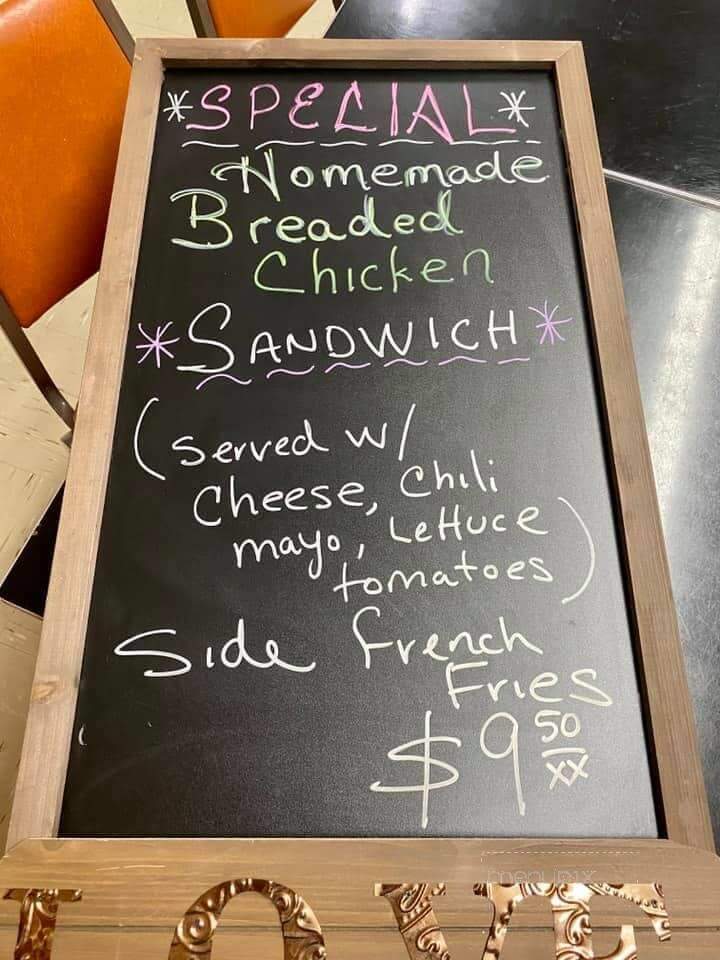 *SPECIAL*
Homemade
Breaded
Chicken
*SANDWICH*
(Served w/
Cheese, Chili
mayo, Lettuce
tomatoes)
Side French
Fries
$9 50/xx
menupix
LOVE